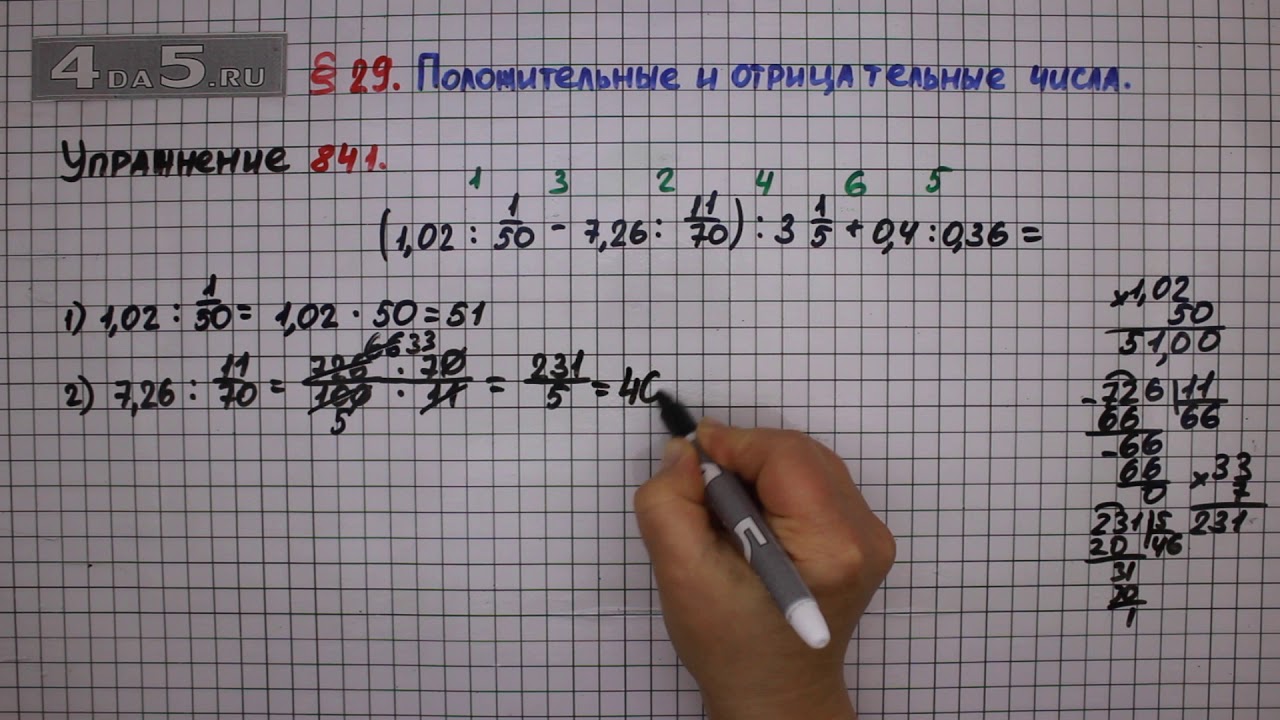 4DA5.RU
§ 29. Положительные и отрицательные числа.
Упражнение 841.
1 3 2 4 6 5
(1,02 : 1/50 - 7,26 : 11/70) : 3 1/5 + 0,4 : 0,36 =
1) 1,02 : 1/50 = 1,02 · 50 = 51
2) 7,26 : 11/70 = 726 · 70 / 100 · 11 = 231/5 = 46
66 33
5
×1,02
50
51,00
-726 | 11
66 | 66
-66
66
0
×33
7
231
231 | 5
20 | 46
31
30
1